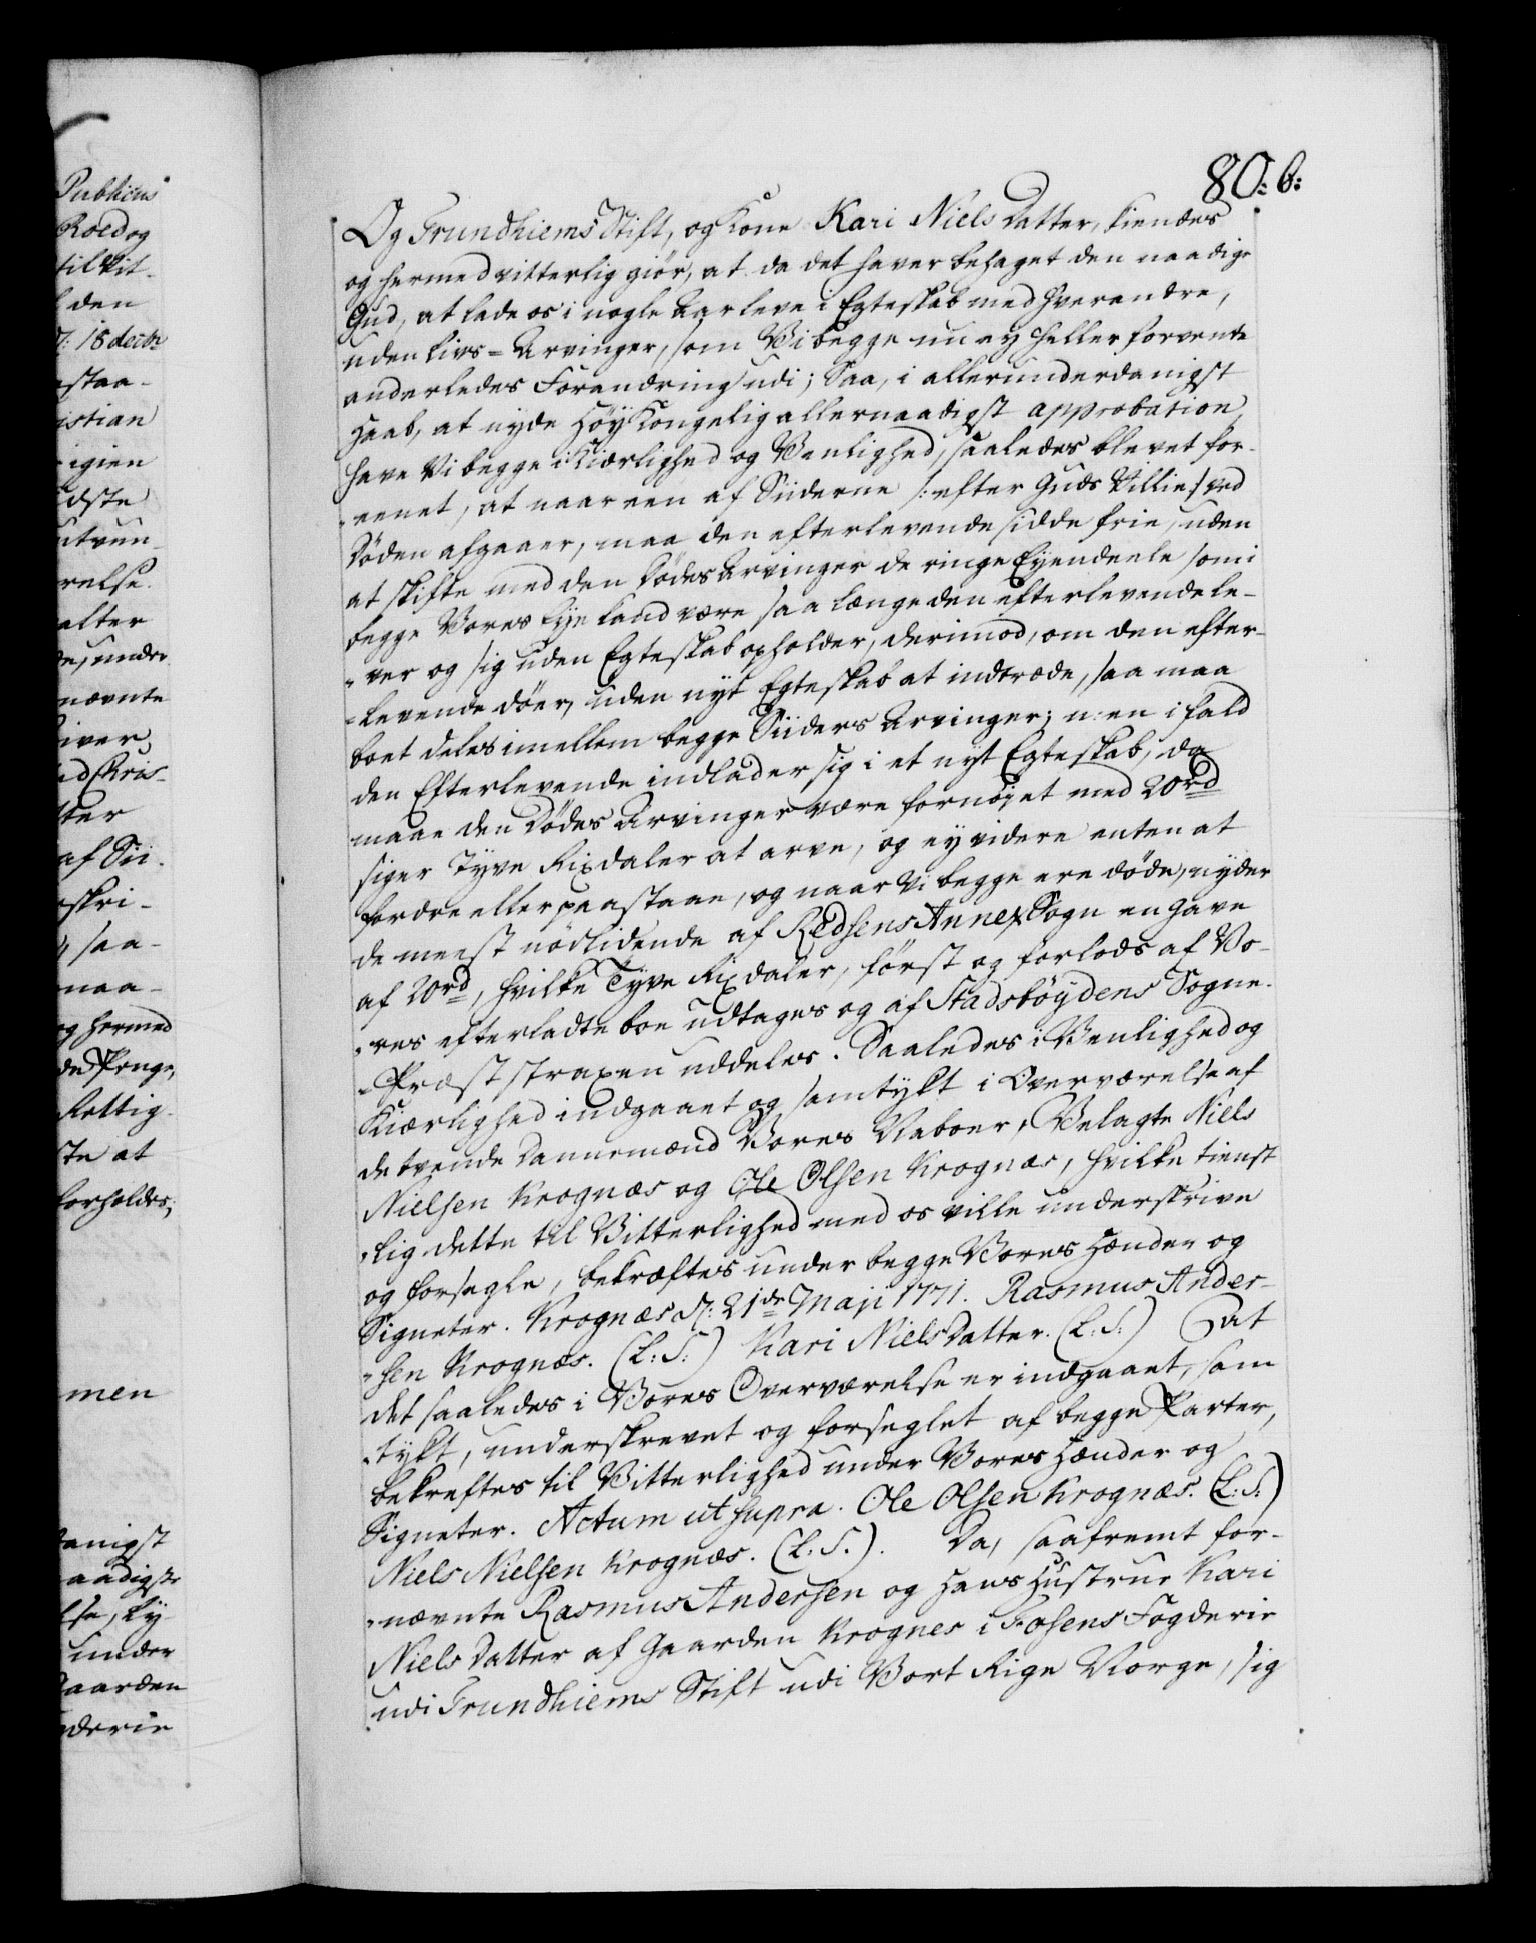 80: b:
Og Trundhiems Stift, og Kone Kari Niels Datter, kiendes
og hermed vitterlig giör, at da det haver behaget den naadige
Gud, at lade os i nogle Aar leve i Egteskab med hverandre,
uden Livs-Arvinger, som Vi begge nu ey heller forvente
anderledes Forandring udi; Saa, i allerunderdanigst
Haab, at nyde Höy Kongelig allernaadigst approbation,
have Vi begge i Kiærlighed og Venlighed, saaledes blevet for-
eenet, at naar een af Siiderne /: efter Guds Villie :/ ved
Döden afgaaer, maa den efterlevende sidde frie, uden
at skifte med den Dödes Arvinger de ringe Eyendeele som i
begge Vores Eye kand være saa længe den efterlevende le-
ver og sig uden Egteskab opholder, derimod, om den efter-
levende döer, uden nyt Egteskab at indtræde, saa maa
boet deles imellem begge Siiders Arvinger; men i fald
den Efterlevende indlader sig i et nyt Egteskab, da
maae den Dödes Arvinger være fornöyet med 20 rd
siger Tyve Rixdaler at arve, og ey videre enten at
fordre eller paastaae, og naar Vi begge ere döde, nyder
de meest nödlidende af Redsens Annex Sogn en gave
af 20 rd, hvilke Tyve Rixdaler, först og forlods af Vo-
res efterladte boe udtages og af Stadsböydens Sogne-
Præst straxen uddeles. Saaledes i Venlighed og
Kiærlighed indgaaet og samtykt i Overværelse af
de tvende Dannemænd Vores Naboer, Velagte Niels
Nielsen Krognæs og Ole Olsen Krognæs, hvilke tienst
lig dette til Vitterlighed med os ville underskrive
og forsegle, bekræftes under begge Vores Hænder og
Signeter. Krognæs d: 21de Maji 1771. Rasmus Ander-
sen Krognæs. (L: S:) Kari Niels Datter. (L: S:) At
det saaledes i Vores Overværelse er indgaaet, sam
tykt, underskrevet og forseglet af begge Parter,
bekreftes til Vitterlighed under Vores Hænder og
Signeter. Actum ut supra. Ole Olsen Krognæs. (L: S:)
Niels Nielsen Krognæs. (L: S.). Da, saafremt for-
nævnte Rasmus Andersen og Hans Hustrue Kari
Niels Datter af Gaarden Krognes i Fosens Fogderie
udi Trundhiems Stift udi Vort Rige Norge, sig